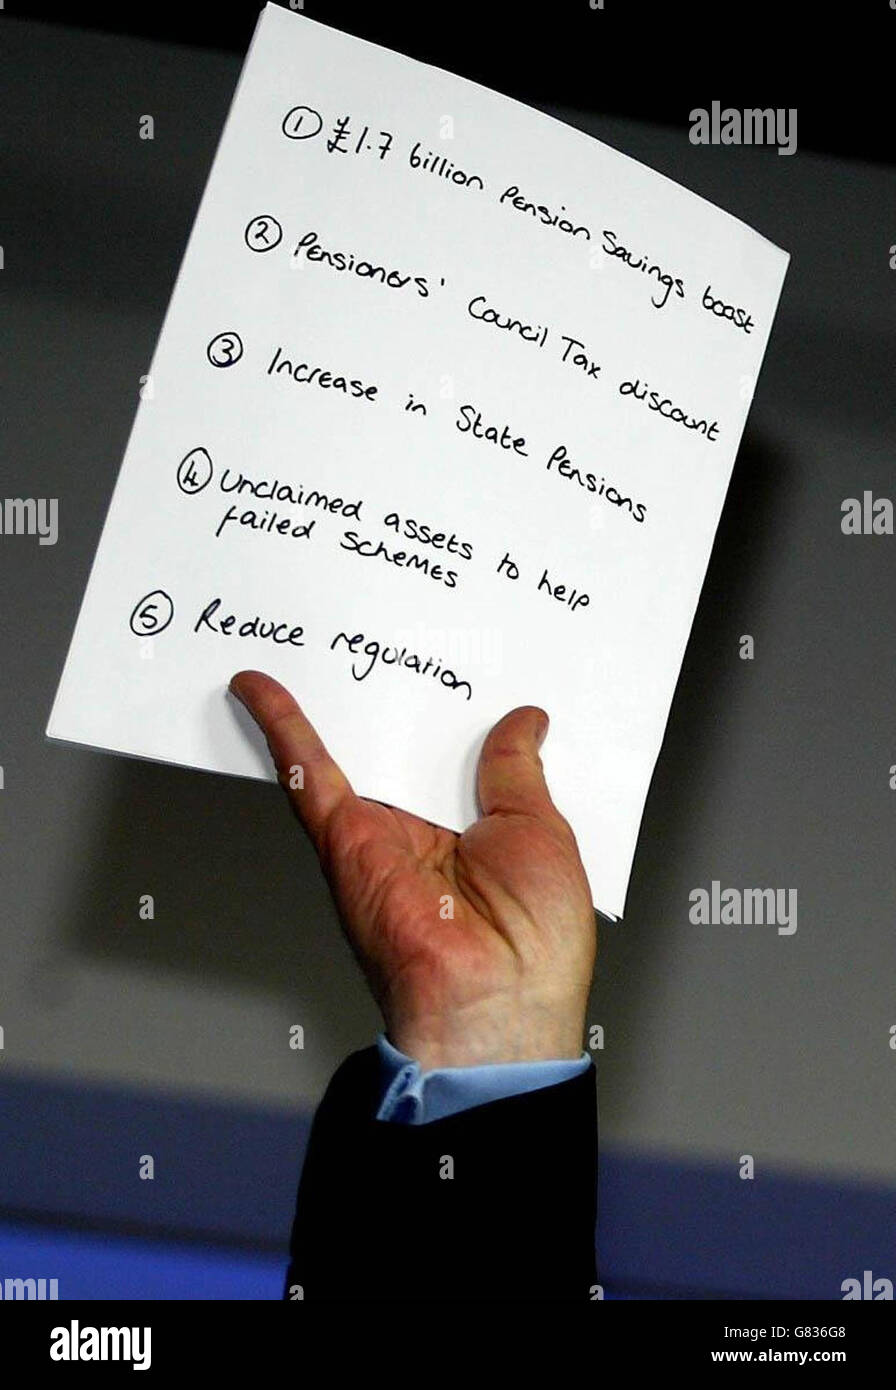 ① £1.7 billion Pension Savings boost
② Pensioners' Council Tax discount
③ Increase in State Pensions
④ Unclaimed assets to help
failed schemes
⑤ Reduce regulation
alamy
alamy
Image ID: G836G8
www.alamy.com